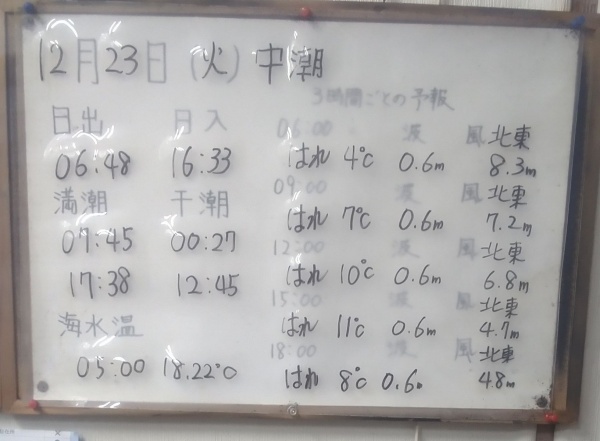 12月23日(火)中潮
3時間ごとの予報
日出 日入
06:48 16:33
満潮 干潮
07:45 00:27
17:38 12:45
海水温
05:00 18.22℃
06:00 波 風 北東
はれ 4℃ 0.6m 8.3m
09:00 波 風 北東
はれ 7℃ 0.6m 7.2m
12:00 波 風 北東
はれ 10℃ 0.6m 6.8m
15:00 波 風 北東
はれ 11℃ 0.6m 4.7m
18:00 波 風 北東
はれ 8℃ 0.6m 4.8m